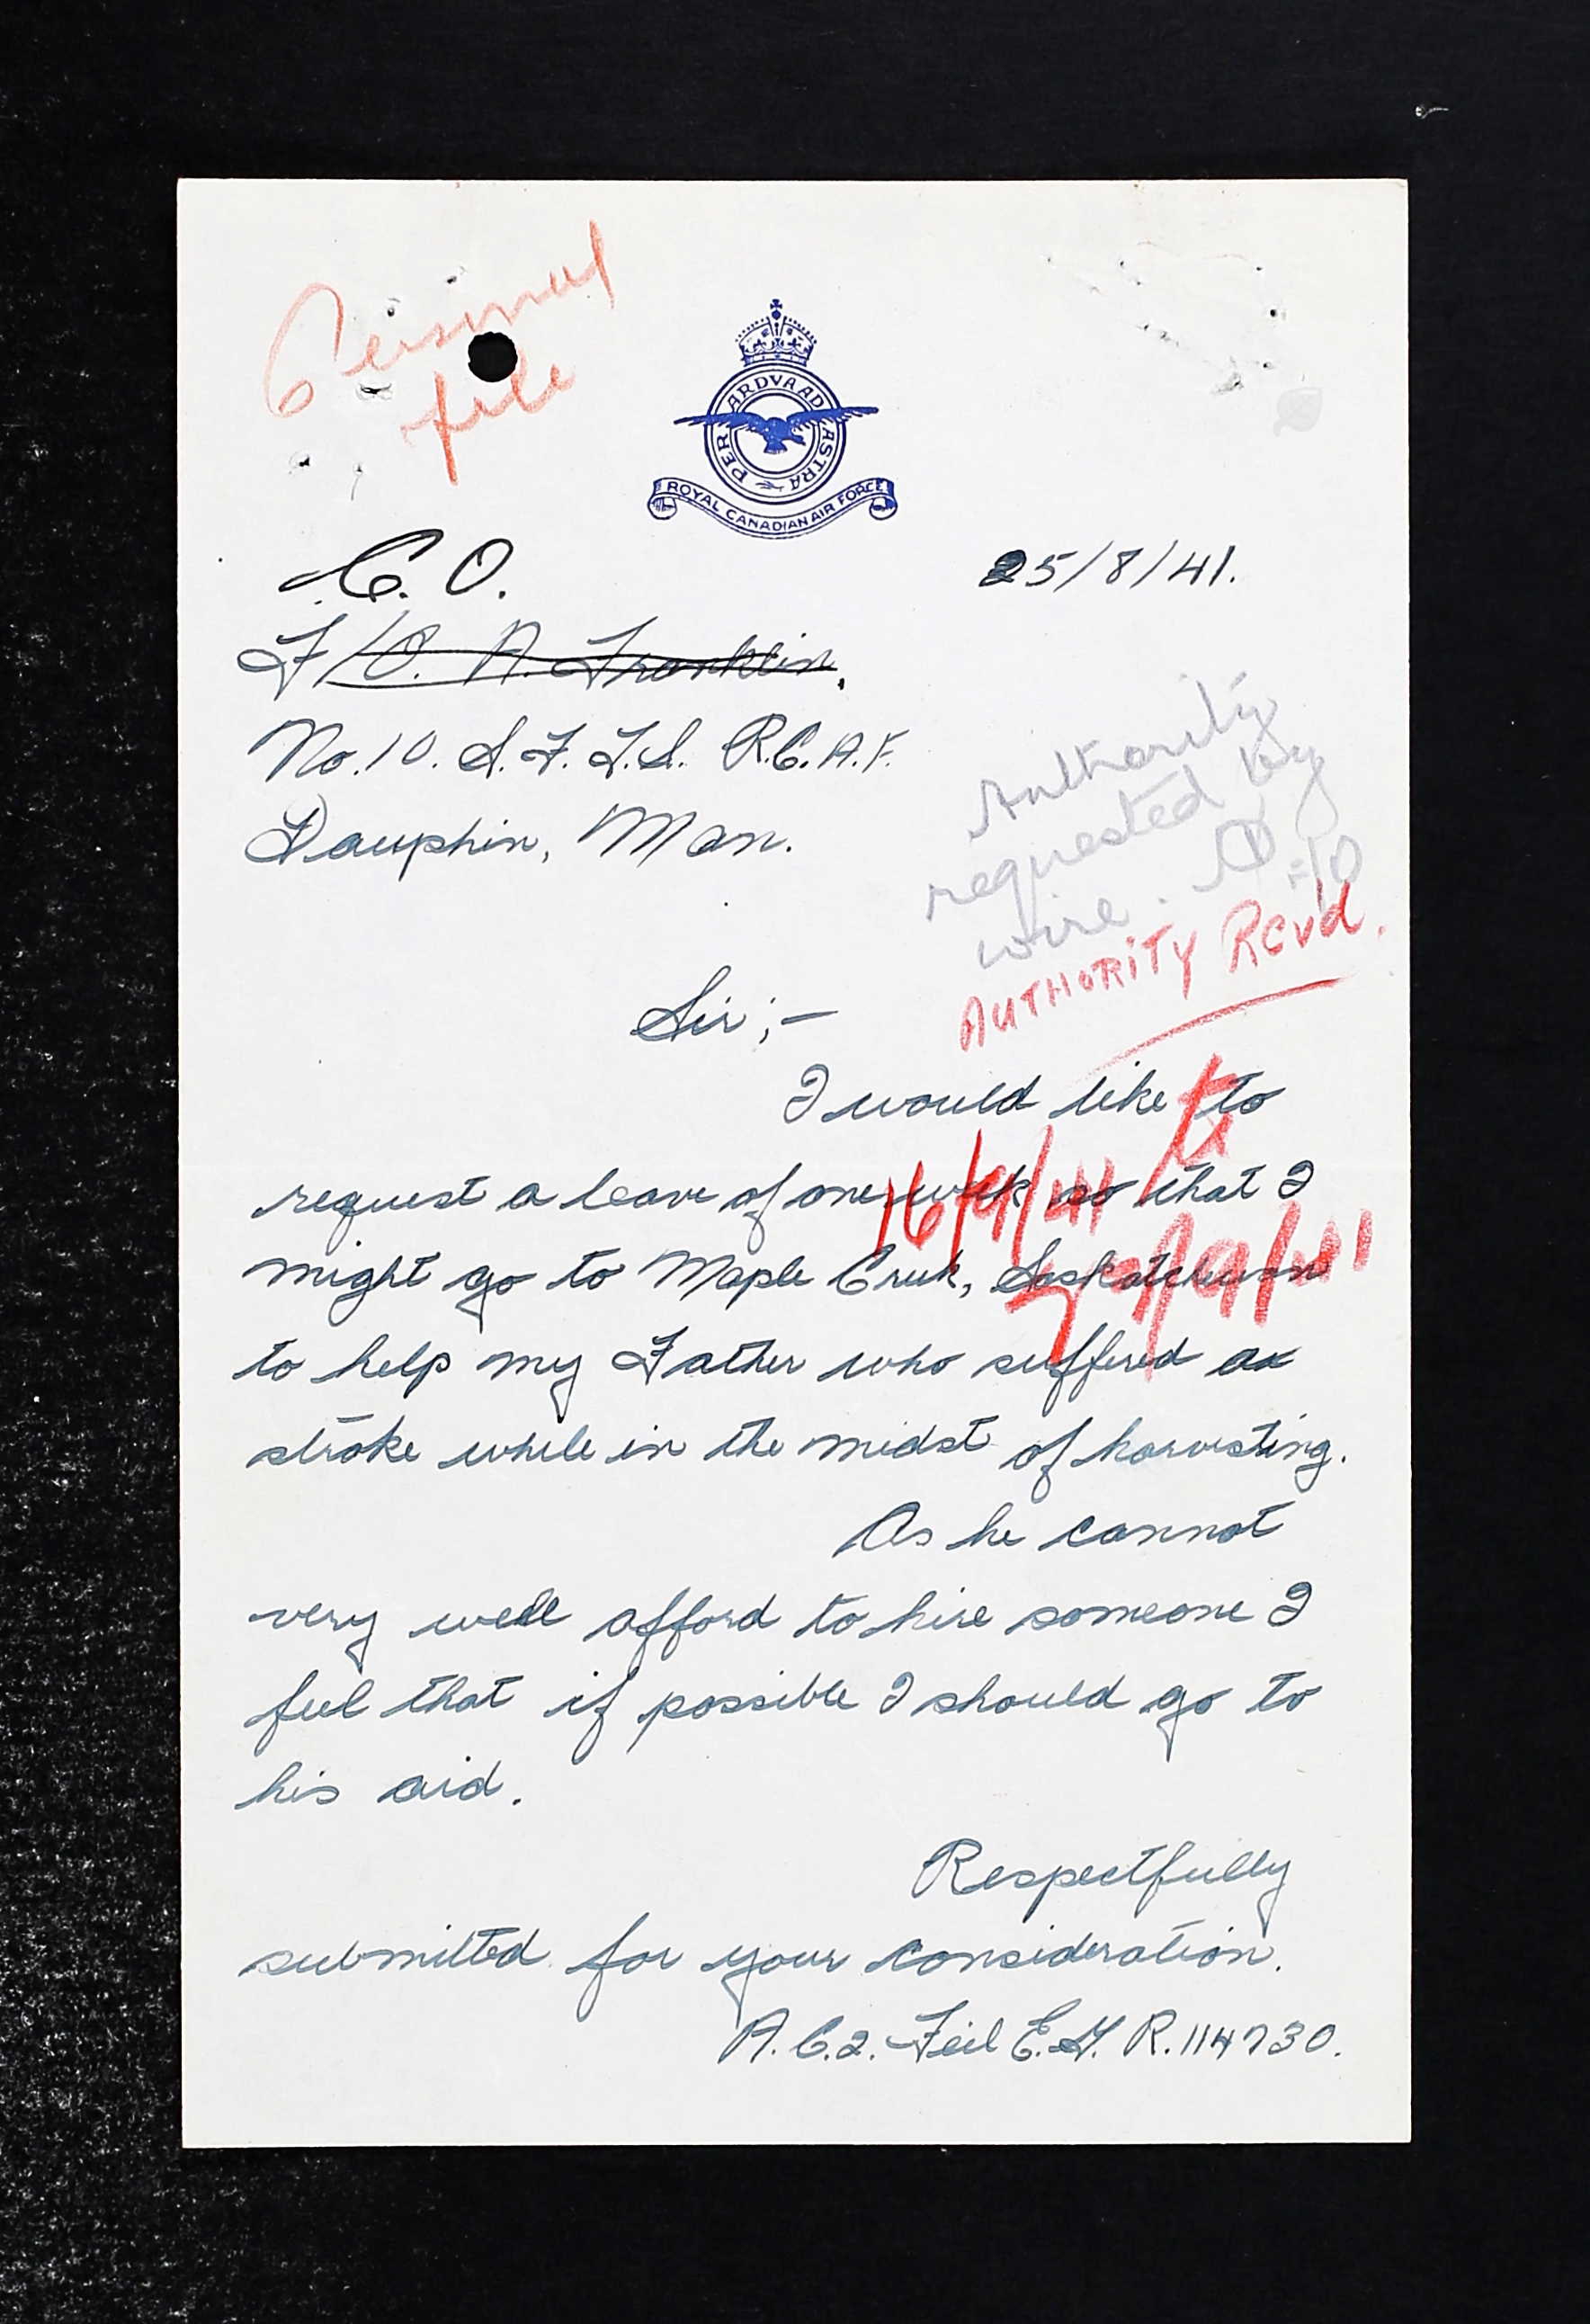 Personal
file
PER ARDVA AD ASTRA
ROYAL CANADIAN AIR FORCE
C. O.
25/8/41.
F/O. A. Franklin,
No. 10. S. F. T. S. R.C.A.F.
Dauphin, Man.
Authority
requested by
wire.
AUTHORITY RCVD.
Sir;-
I would like to
request a leave of one week so that I
16/9/41
might go to Maple Creek, Saskatchewan
9/41
to help my Father who suffered a
stroke while in the midst of harvesting.
As he cannot
very well afford to hire someone I
feel that if possible I should go to
his aid.
Respectfully
submitted for your consideration.
A.C.2. Feil E.G. R.114730.